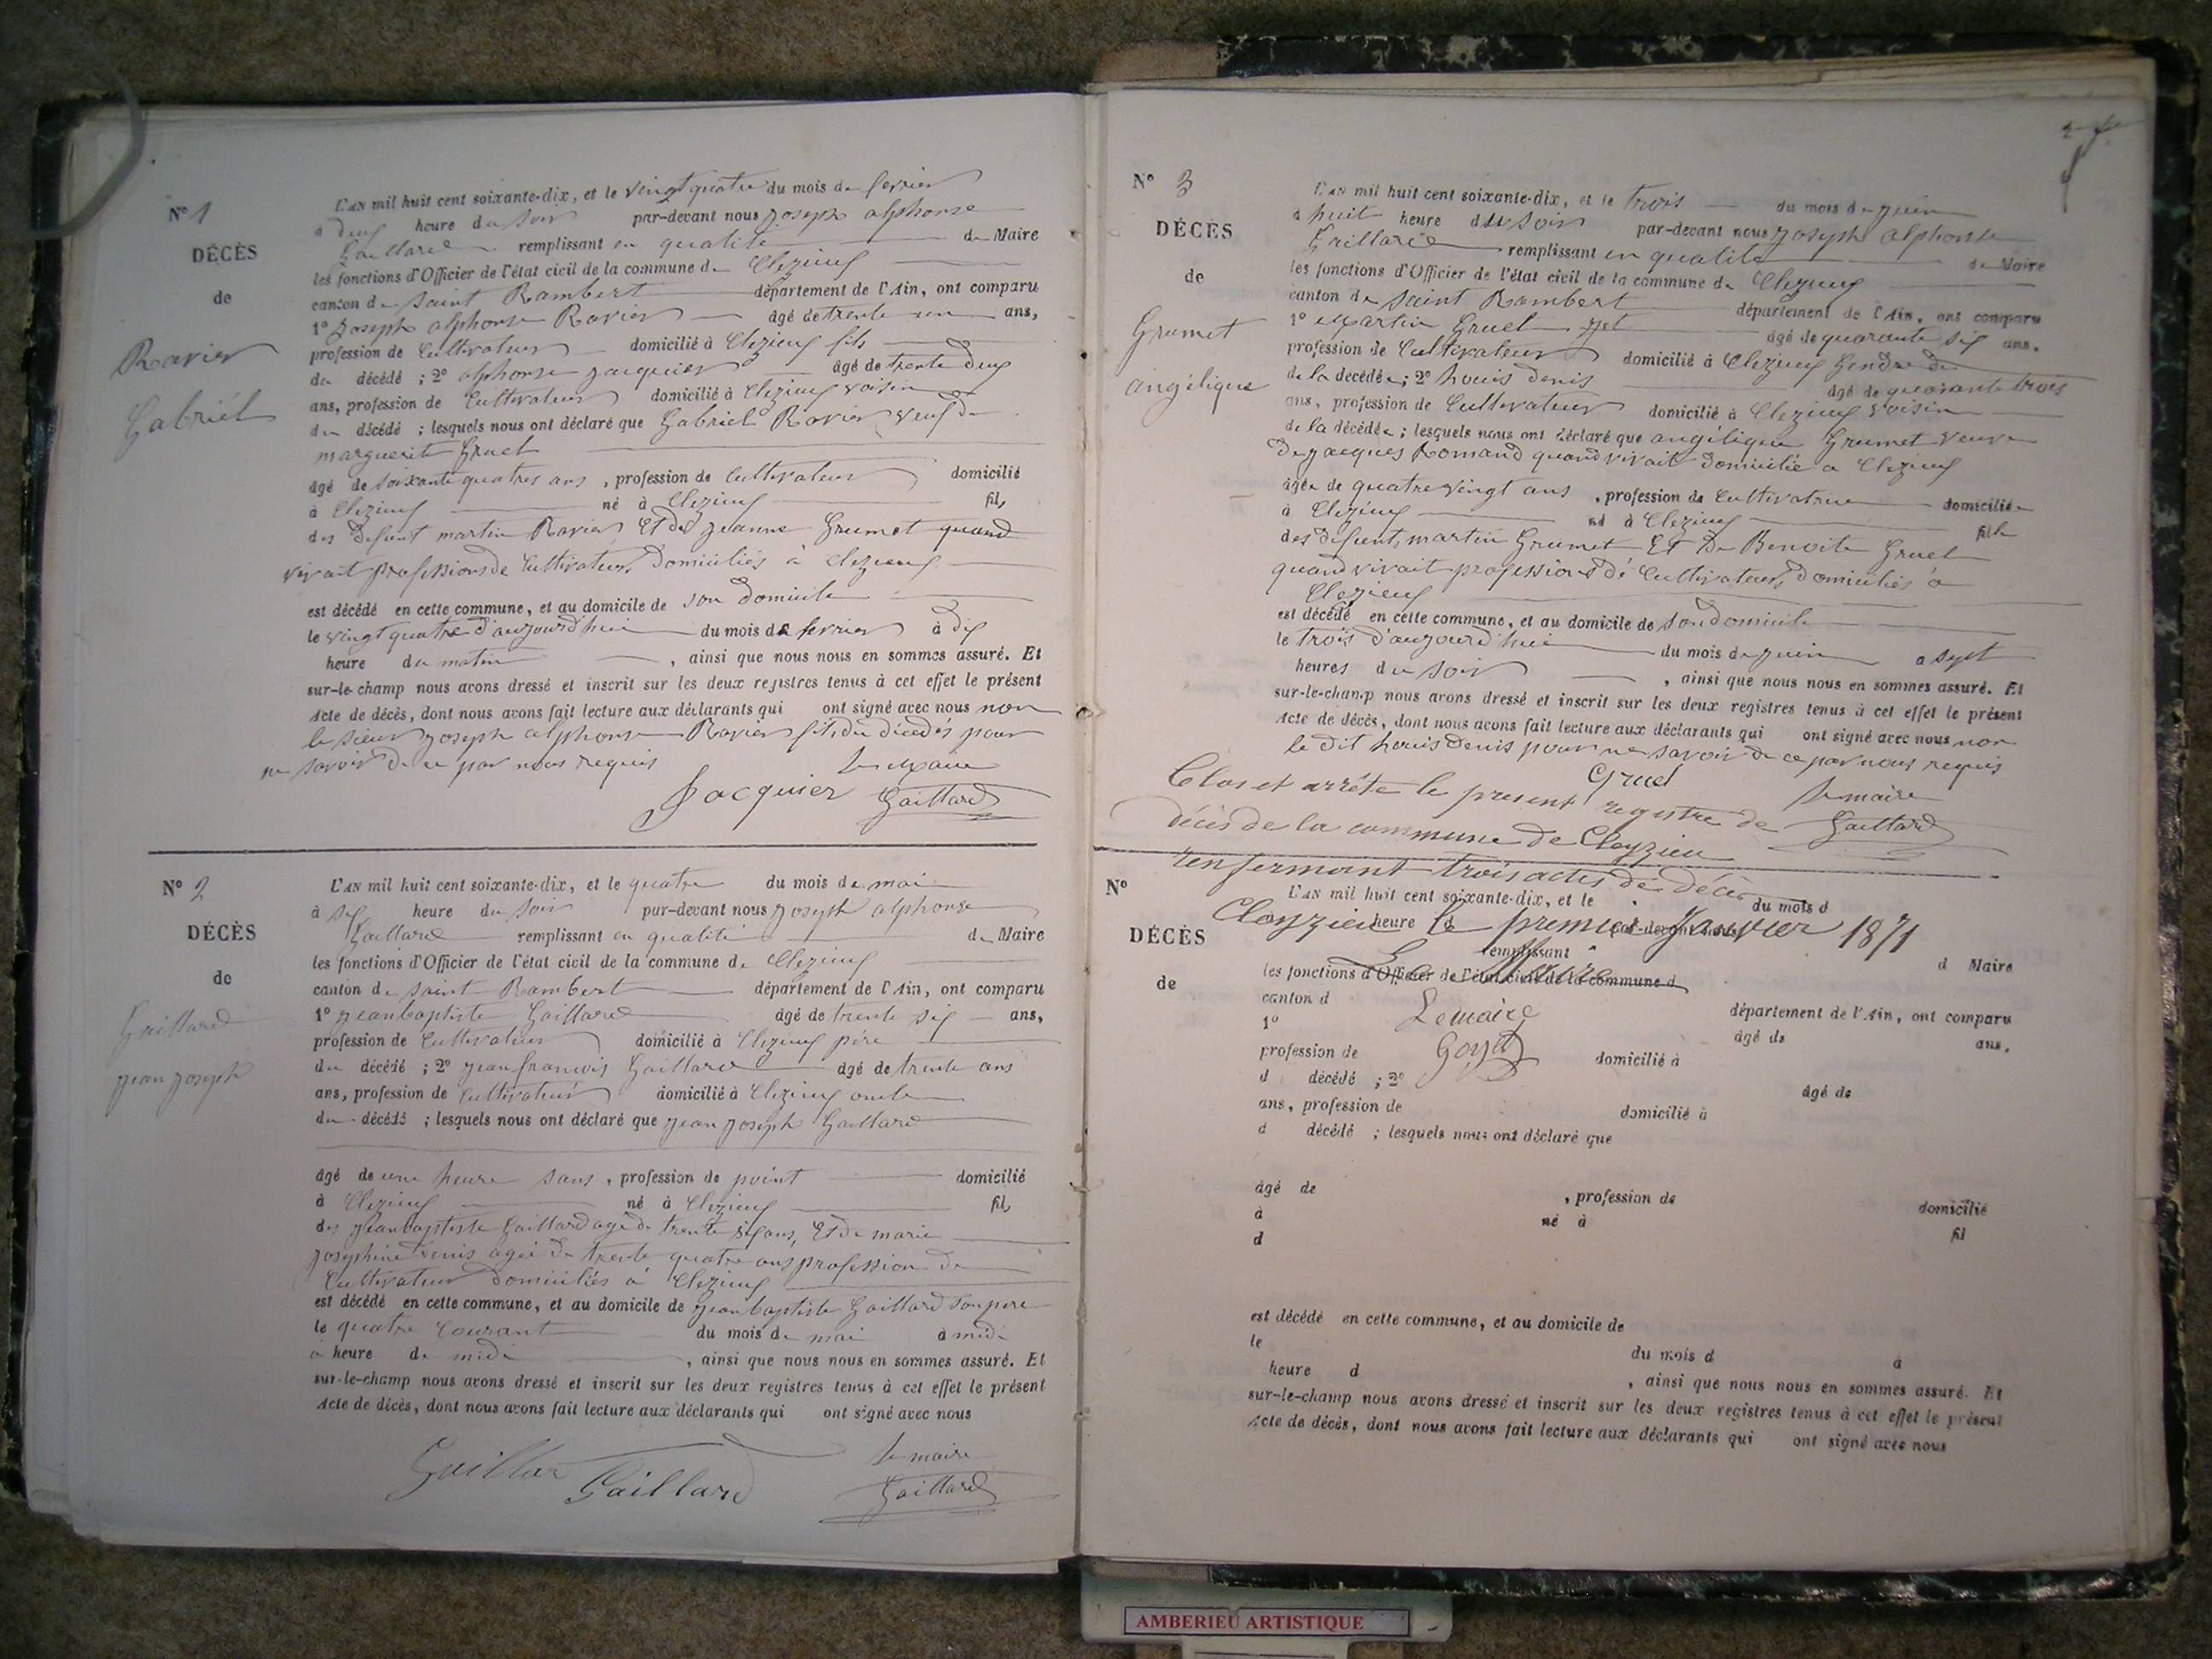 N° 1
DÉCÈS
de
Ravier
Gabriel
L'AN mil huit cent soixante-dix, et le vingt quatre du mois de fevrier
à deux heure du soir par-devant nous Joseph alphonse
Gaillard remplissant en qualité de Maire
les fonctions d'Officier de l'état civil de la commune de Clezieux
canton de saint Rambert département de l'Ain, ont comparu
1° Joseph alphonse Ravier âgé de trente un ans,
profession de Cultivateur domicilié à Clezieux fils
du décédé ; 2° alphonse jacquier âgé de trente deux
ans, profession de Cultivateur domicilié à Clezieux voisin
du décédé ; lesquels nous ont déclaré que Gabriel Ravier veuf de
marguerite Gruel
âgé de soixante quatres ans , profession de Cultivateur domicilié
à Clezieux né à Clezieux fils
des defunt martin Ravier Et de jeanne Grumet quand
vivait professions de Cultivateur Domiciliés à Clezieux
est décédé en cette commune, et au domicile de son Domicile
le vingt quatre d'aujourd'hui du mois de fevrier à dix
heure du matin , ainsi que nous nous en sommes assuré. Et
sur-le-champ nous avons dressé et inscrit sur les deux registres tenus à cet effet le présent
Acte de décès, dont nous avons fait lecture aux déclarants qui ont signé avec nous non
le sieur Joseph alphonse Ravier fils du décédés pour
ne savoir de ce par nous requis Le Maire
Jacquier Gaillard
N° 2
DÉCÈS
de
Gaillard
jean joseph
L'AN mil huit cent soixante-dix, et le quatre du mois de mai
à six heure du soir par-devant nous joseph alphonse
Gaillard remplissant en qualité de Maire
les fonctions d'Officier de l'état civil de la commune de Clezieux
canton de saint Rambert département de l'Ain, ont comparu
1° jean baptiste Gaillard âgé de trente six ans,
profession de Cultivateur domicilié à Clezieux père
du décédé ; 2° jean francois Gaillard âgé de trente ans
ans, profession de Cultivateur domicilié à Clezieux oncle
du décédé ; lesquels nous ont déclaré que jean joseph Gaillard
âgé de une heure sans , profession de point domicilié
à Clezieux né à Clezieux fils
des jean baptiste Gaillard agé de trente six ans, Et de marie
josephine Denis agée de trente quatre ans profession de
Cultivateur Domiciliés à Clezieux
est décédé en cette commune, et au domicile de jean baptiste Gaillard son pere
le quatre Courant du mois de mai à midi
a heure de midi , ainsi que nous nous en sommes assuré. Et
sur-le-champ nous avons dressé et inscrit sur les deux registres tenus à cet effet le présent
Acte de décès, dont nous avons fait lecture aux déclarants qui ont signé avec nous
Le maire
Gaillar Gaillard Gaillard
N° 3
DÉCÈS
de
Grumet
angélique
L'AN mil huit cent soixante-dix, et le trois du mois de juin
à huit heure du soir par-devant nous joseph alphonse
Gaillard remplissant en qualité de Maire
les fonctions d'Officier de l'état civil de la commune de Clezieux
canton de saint Rambert département de l'Ain, ont comparu
1° Martin Gruel âgé de quarante six ans.
profession de Cultivateur domicilié à Clezieux Gendre de
de la décédée ; 2° Louis Denis âgé de quarante trois
ans, profession de Cultivateur domicilié à Clezieux voisin
de la décédée ; lesquels nous ont déclaré que angélique Grumet veuve
De jacques Romand quand vivait Domicilié a Clezieux
âgée de quatre vingt ans , profession de Cultivatrice domiciliée
à Clezieux né à Clezieux fille
des defunts martin Grumet Et De Benoite Gruel
quand vivait professions de Cultivateurs, Domiciliés à
Clezieux
est décédé en cette commune, et au domicile de son domicile
le trois d'aujourd'hui du mois de juin a sept
heures du soir , ainsi que nous nous en sommes assuré. Et
sur-le-champ nous avons dressé et inscrit sur les deux registres tenus à cet effet le présent
Acte de décès, dont nous avons fait lecture aux déclarants qui ont signé avec nous non
le dit Louis Denis pour ne savoir de ce par nous requis
Gruel Le maire
Gaillard
Clos et arrêté le present registre de
décès de la commune de Cleyzieu
renfermant trois actes de décès
Cleyzieu le premier Janvier 1871
Le Maire
Lemaire
Goyet
N°
DÉCÈS
de
L'AN mil huit cent soixante-dix, et le du mois d
heure d par-devant nous
remplissant d Maire
les fonctions d'Officier de l'état civil de la commune d
canton d département de l'Ain, ont comparu
1° âgé de ans.
profession de domicilié à
d décédé ; 2° âgé de
ans, profession de domicilié à
d décédé ; lesquels nous ont déclaré que
âgé de , profession de domicilié
à né à fil
d
est décédé en cette commune, et au domicile de
le du mois d à
heure d , ainsi que nous nous en sommes assuré. Et
sur-le-champ nous avons dressé et inscrit sur les deux registres tenus à cet effet le présent
Acte de décès, dont nous avons fait lecture aux déclarants qui ont signé avec nous
AMBERIEU ARTISTIQUE